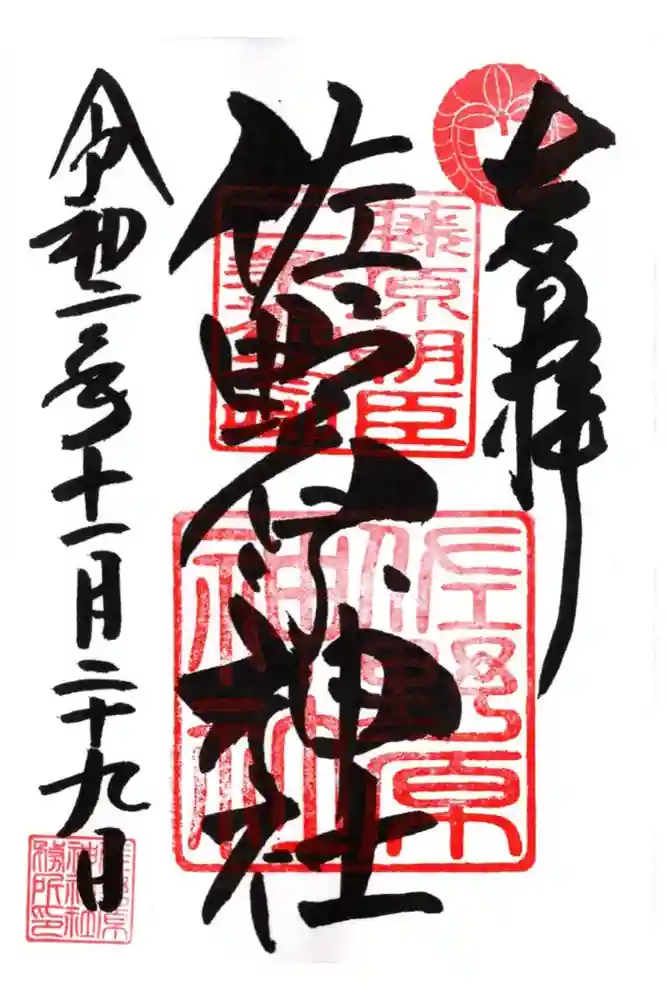 奉拝
佐野原神社
令和二年十一月二十九日
藤原朝臣
佐野原
神社